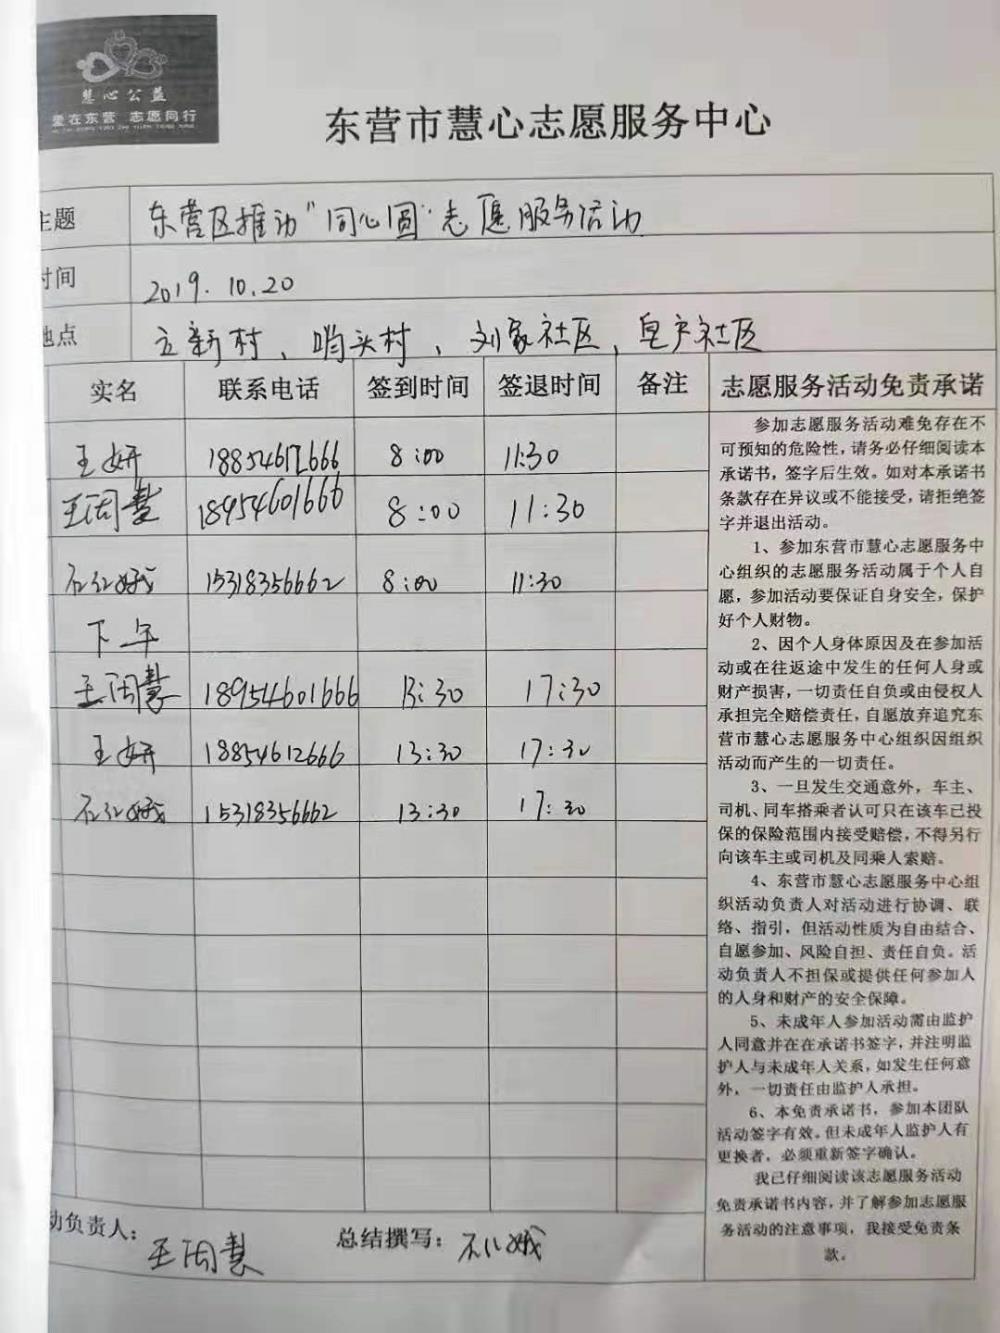 慧心公益
爱在东营 志愿同行
东营市慧心志愿服务中心
主题 东营区推动“同心圆”志愿服务活动
时间 2019.10.20
地点 立新村、哨头村、刘家社区,皂户社区
实名 联系电话 签到时间 签退时间 备注
王妍 18854612666 8:00 11:30
王闰慧 18954601666 8:00 11:30
石红娥 15318356662 8:00 11:30
下午
王闰慧 18954601666 13:30 17:30
王妍 18854612666 13:30 17:30
石红娥 15318356662 13:30 17:30
志愿服务活动免责承诺
参加志愿服务活动难免存在不
可预知的危险性,请务必仔细阅读本
承诺书,签字后生效。如对本承诺书
条款存在异议或不能接受,请拒绝签
字并退出活动。
1、参加东营市慧心志愿服务中
心组织的志愿服务活动属于个人自
愿,参加活动要保证自身安全,保护
好个人财物。
2、因个人身体原因及在参加活
动或在往返途中发生的任何人身或
财产损害,一切责任自负或由侵权人
承担完全赔偿责任,自愿放弃追究东
营市慧心志愿服务中心组织因组织
活动而产生的一切责任。
3、一旦发生交通意外,车主、
司机、同车搭乘者认可只在该车已投
保的保险范围内接受赔偿,不得另行
向该车主或司机及同乘人索赔。
4、东营市慧心志愿服务中心组
织活动负责人对活动进行协调、联
络、指引,但活动性质为自由结合、
自愿参加、风险自担、责任自负。活
动负责人不担保或提供任何参加人
的人身和财产的安全保障。
5、未成年人参加活动需由监护
人同意并在在承诺书签字,并注明监
护人与未成年人关系,如发生任何意
外,一切责任由监护人承担。
6、本免责承诺书,参加本团队
活动签字有效。但未成年人监护人有
更换者,必须重新签字确认。
我已仔细阅读该志愿服务活动
免责承诺书内容,并了解参加志愿服
务活动的注意事项,我接受免责条
款。
动负责人: 王闰慧 总结撰写: 石红娥